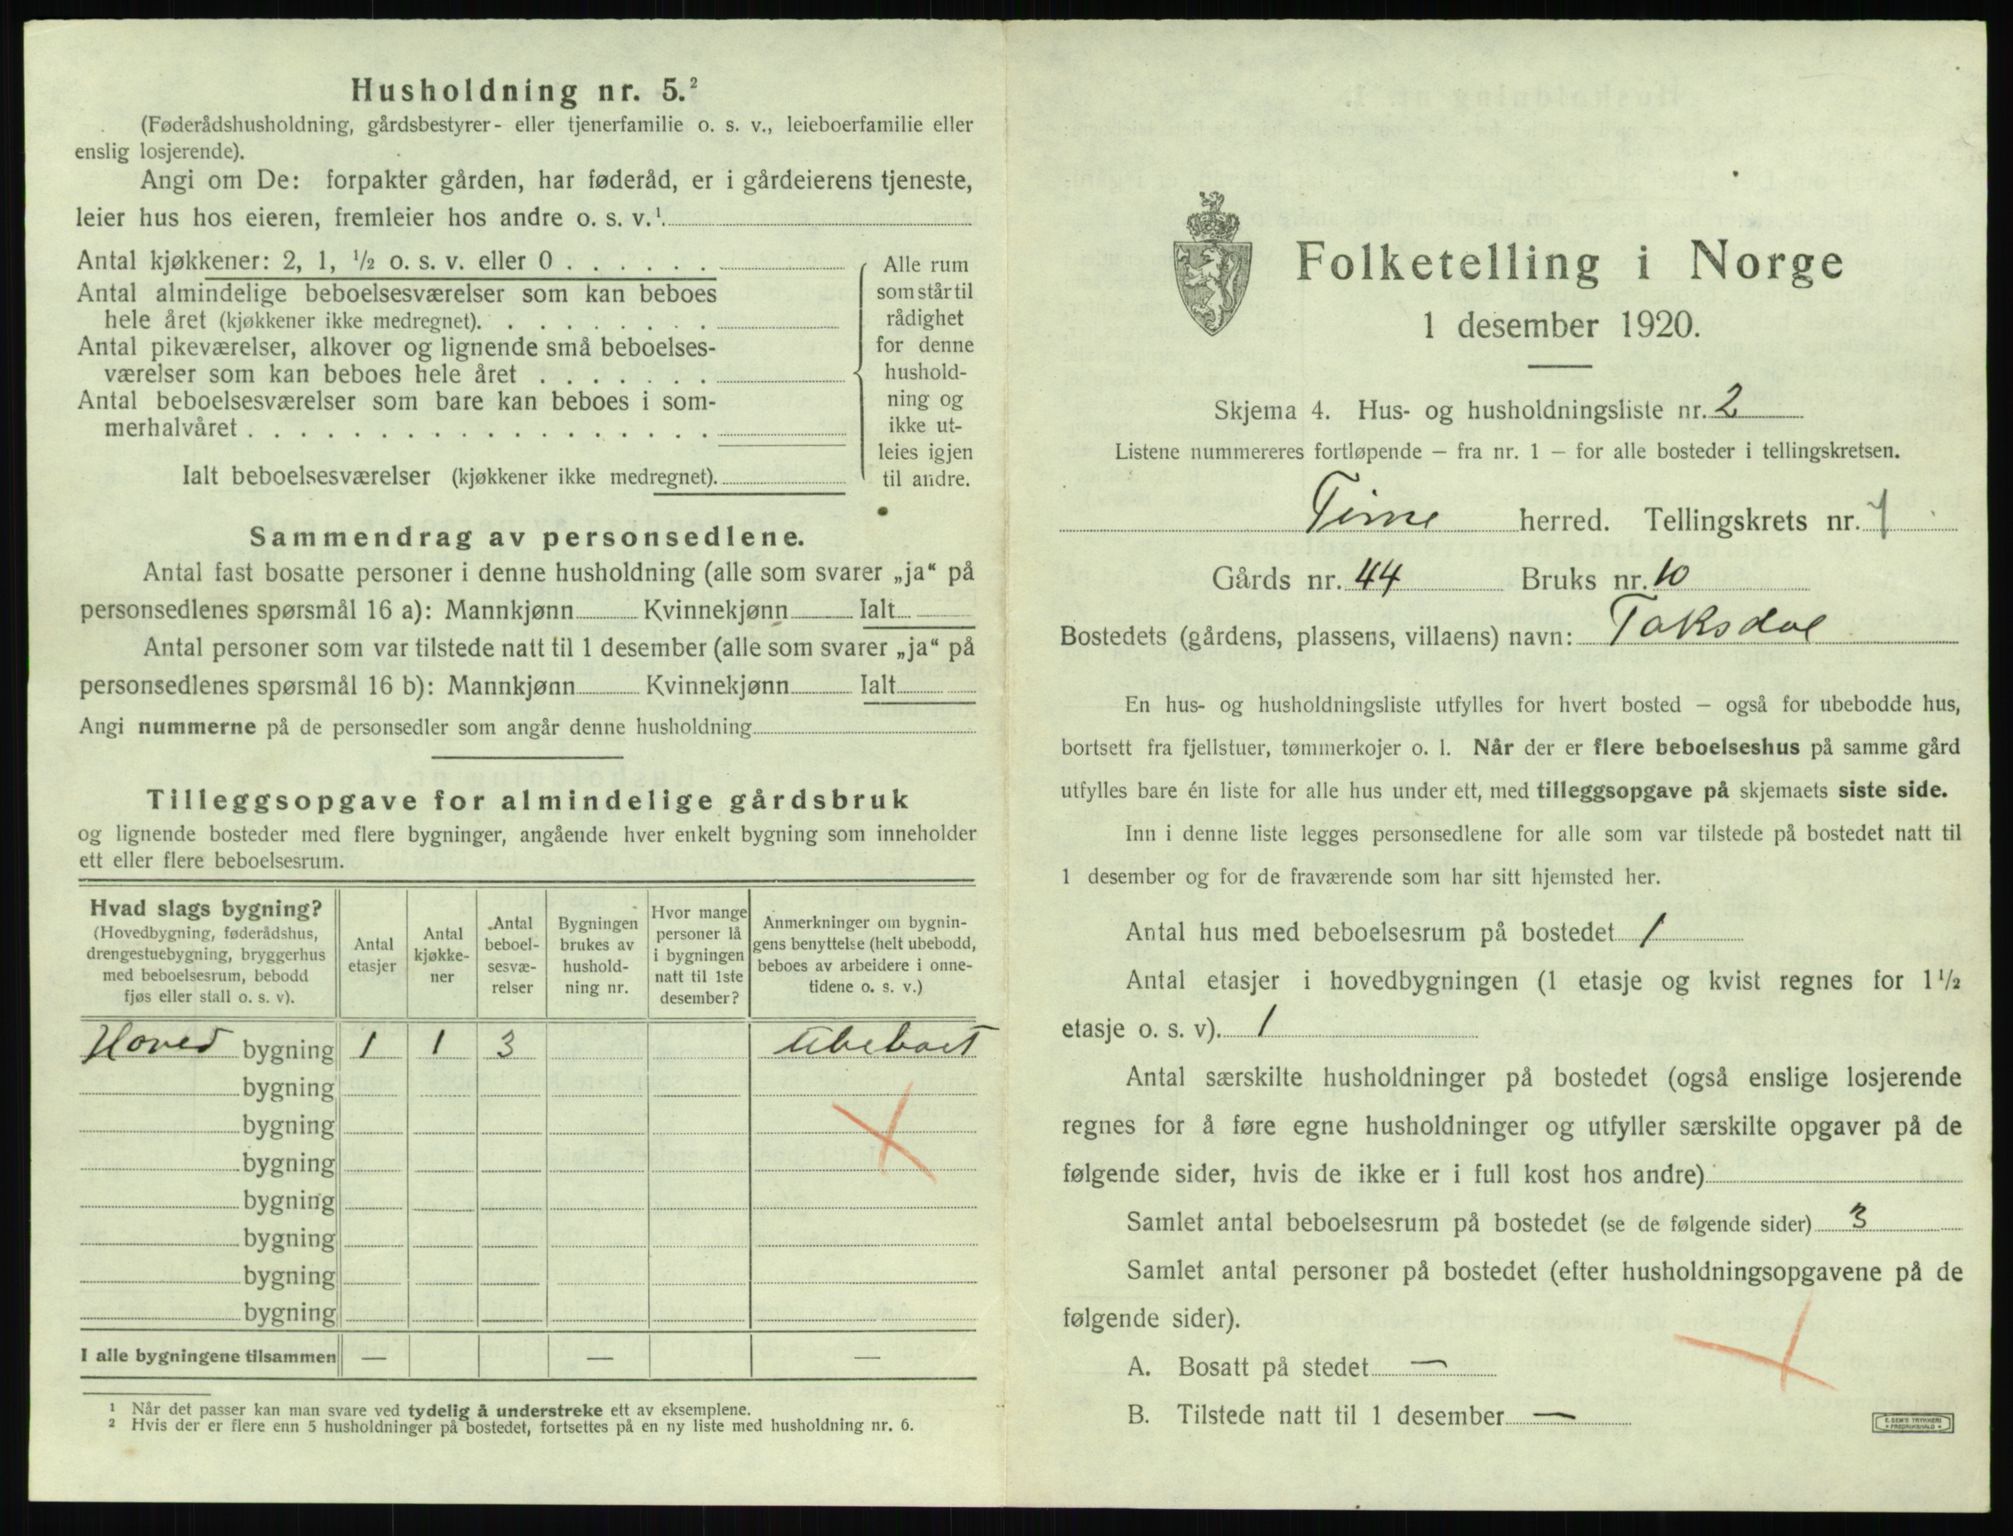 Husholdning nr. 5.²
(Føderådshusholdning, gårdsbestyrer- eller tjenerfamilie o. s. v., leieboerfamilie eller
enslig losjerende).
Angi om De: forpakter gården, har føderåd, er i gårdeierens tjeneste,
leier hus hos eieren, fremleier hos andre o. s. v.¹
Antal kjøkkener: 2, 1, ½ o. s. v. eller 0
Antal almindelige beboelsesværelser som kan beboes
hele året (kjøkkener ikke medregnet).
Antal pikeværelser, alkover og lignende små beboelses-
værelser som kan beboes hele året
Antal beboelsesværelser som bare kan beboes i som-
merhalvåret
Ialt beboelsesværelser (kjøkkener ikke medregnet).
Alle rum
som står til
rådighet
for denne
hushold-
ning og
ikke ut-
leies igjen
til andre.
Sammendrag av personsedlene.
Antal fast bosatte personer i denne husholdning (alle som svarer „ja“ på
personsedlenes spørsmål 16 a): Mannkjønn Kvinnekjønn Ialt
Antal personer som var tilstede natt til 1 desember (alle som svarer „ja“ på
personsedlenes spørsmål 16 b): Mannkjønn Kvinnekjønn Ialt
Angi nummerne på de personsedler som angår denne husholdning
Tilleggsopgave for almindelige gårdsbruk
og lignende bosteder med flere bygninger, angående hver enkelt bygning som inneholder
ett eller flere beboelsesrum.
Hvad slags bygning?
(Hovedbygning, føderådshus,
drengestuebygning, bryggerhus
med beboelsesrum, bebodd
fjøs eller stall o. s. v).
Antal
etasjer
Antal
kjøkke-
ner
Antal
beboel-
sesvæ-
relser
Bygningen
brukes av
hushold-
ning nr.
Hvor mange
personer lå
i bygningen
natt til 1ste
desember?
Anmerkninger om bygnin-
gens benyttelse (helt ubebodd,
beboes av arbeidere i onne-
tidene o. s. v.)
Hoved bygning 1 1 3 Ubeboet
bygning
bygning
bygning
bygning
bygning
bygning
bygning
I alle bygningene tilsammen — — —
¹ Når det passer kan man svare ved tydelig å understreke ett av eksemplene.
² Hvis der er flere enn 5 husholdninger på bostedet, fortsettes på en ny liste med husholdning nr. 6.
Folketelling i Norge
1 desember 1920.
Skjema 4. Hus- og husholdningsliste nr. 2
Listene nummereres fortløpende – fra nr. 1 – for alle bosteder i tellingskretsen.
Time herred. Tellingskrets nr. 7
Gårds nr. 44 Bruks nr. 10
Bostedets (gårdens, plassens, villaens) navn: Taksdal
En hus- og husholdningsliste utfylles for hvert bosted – også for ubebodde hus,
bortsett fra fjellstuer, tømmerkojer o. l. Når der er flere beboelseshus på samme gård
utfylles bare én liste for alle hus under ett, med tilleggsopgave på skjemaets siste side.
Inn i denne liste legges personsedlene for alle som var tilstede på bostedet natt til
1 desember og for de fraværende som har sitt hjemsted her.
Antal hus med beboelsesrum på bostedet 1
Antal etasjer i hovedbygningen (1 etasje og kvist regnes for 1½
etasje o. s. v). 1
Antal særskilte husholdninger på bostedet (også enslige losjerende
regnes for å føre egne husholdninger og utfyller særskilte opgaver på de
følgende sider, hvis de ikke er i full kost hos andre)
Samlet antal beboelsesrum på bostedet (se de følgende sider) 3
Samlet antal personer på bostedet (efter husholdningsopgavene på de
følgende sider).
A. Bosatt på stedet —
B. Tilstede natt til 1 desember —
E. SEM'S TRYKKERI
FREDRIKSHALD